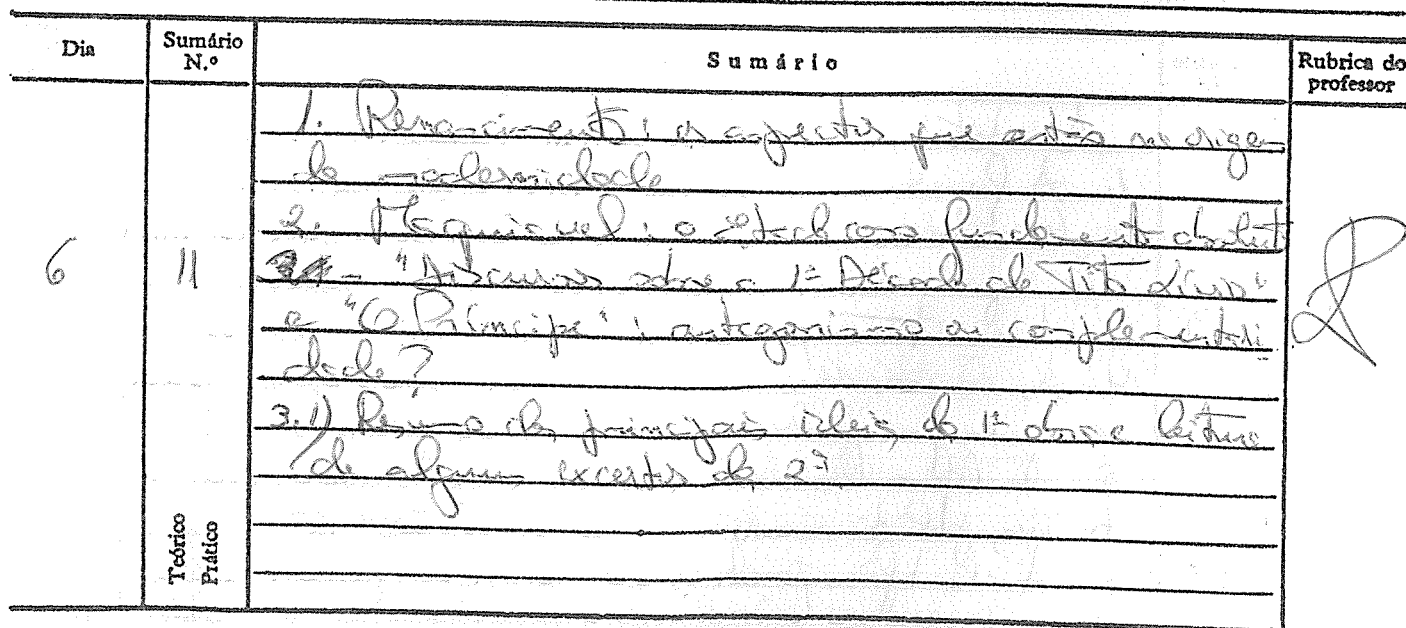 Dia
Sumário N.º
Sumário
Rubrica do professor
6
11
1. Renascimento: os aspectos que estão na origem
da modernidade
2. Maquiavel: o Estado como fundamento absoluto
- "Discursos sobre a 1ª Década de Tito Lívio"
e "O Príncipe": antagonismo ou complementari
dade?
3.1) Resumo das principais ideias da 1ª obra e leitura
de alguns excertos da 2ª
Teórico
Prático